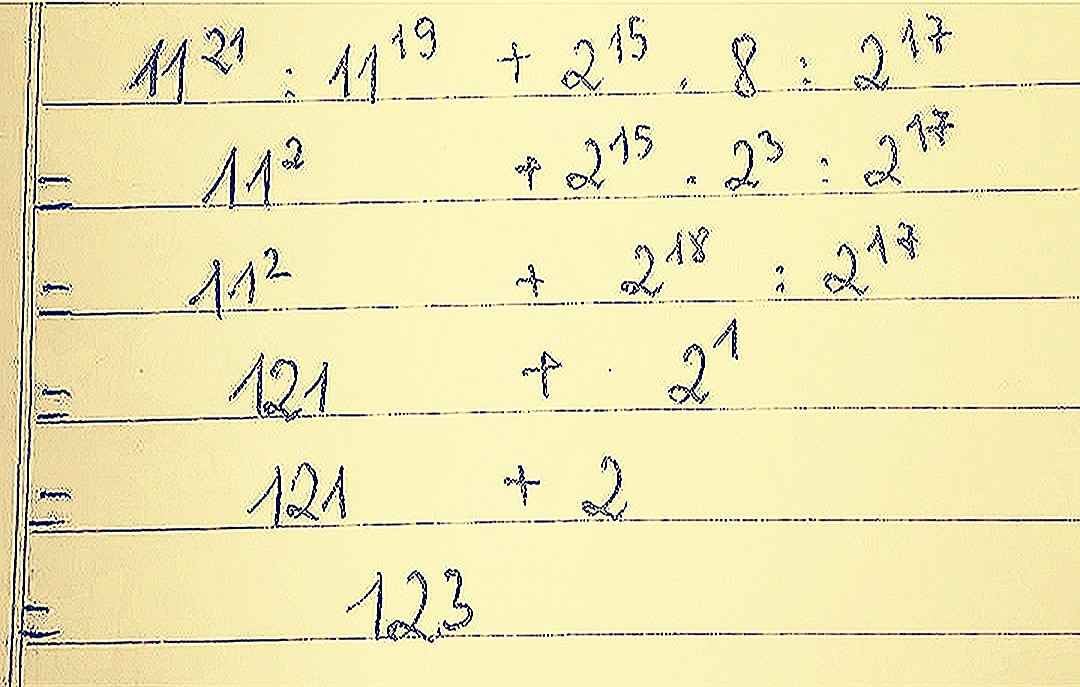 11²¹ : 11¹⁹ + 2¹⁵ . 8 : 2¹⁷
= 11² + 2¹⁵ . 2³ : 2¹⁷
= 11² + 2¹⁸ : 2¹⁷
= 121 + 2¹
= 121 + 2
= 123